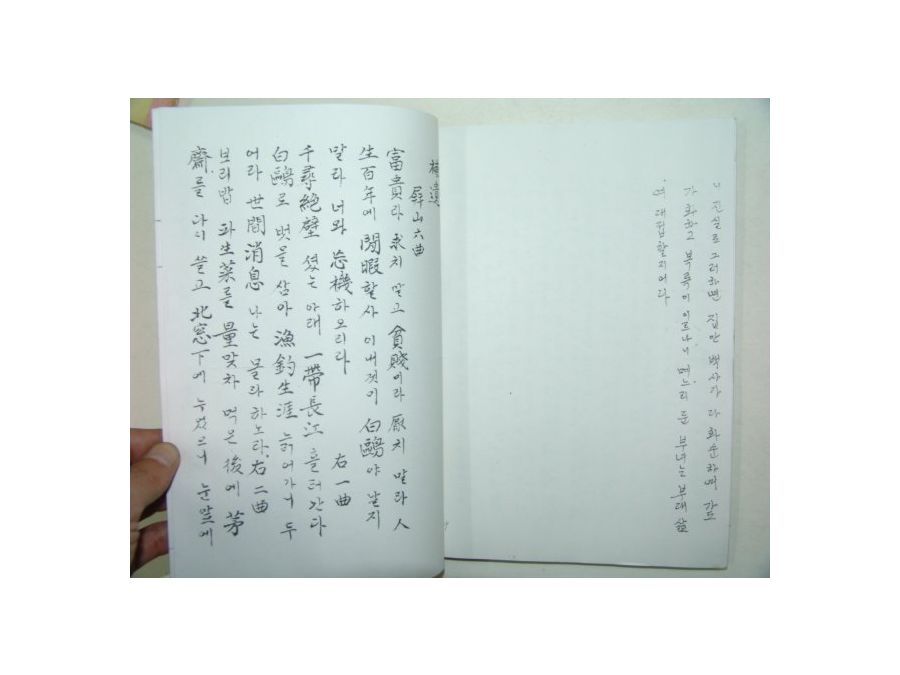 니 진실로 그러하면 집안 백사가 다 화순하여 가도
가 화하고 복록이 이르나니 며느리 둔 부녀는 부대 삶
여 대접할지어다
補遺
屛山六曲
富貴라 求치 말고 貧賤이라 厭치 말라 人
生百年에 閒暇할사 이내것이 白鷗야 날지
말라 너와 忘機하오리다 右一曲
千尋絶壁 섰는 아래 一帶長江 흘터간다
白鷗로 벗을 삼아 漁釣生涯 늙어가니 두
어라 世間消息 나는 몰라 하노라 右二曲
보리밥 파生菜를 量맞차 먹은 後에 茅
齋를 다시 쓸고 北窓下에 누었으니 눈앞에